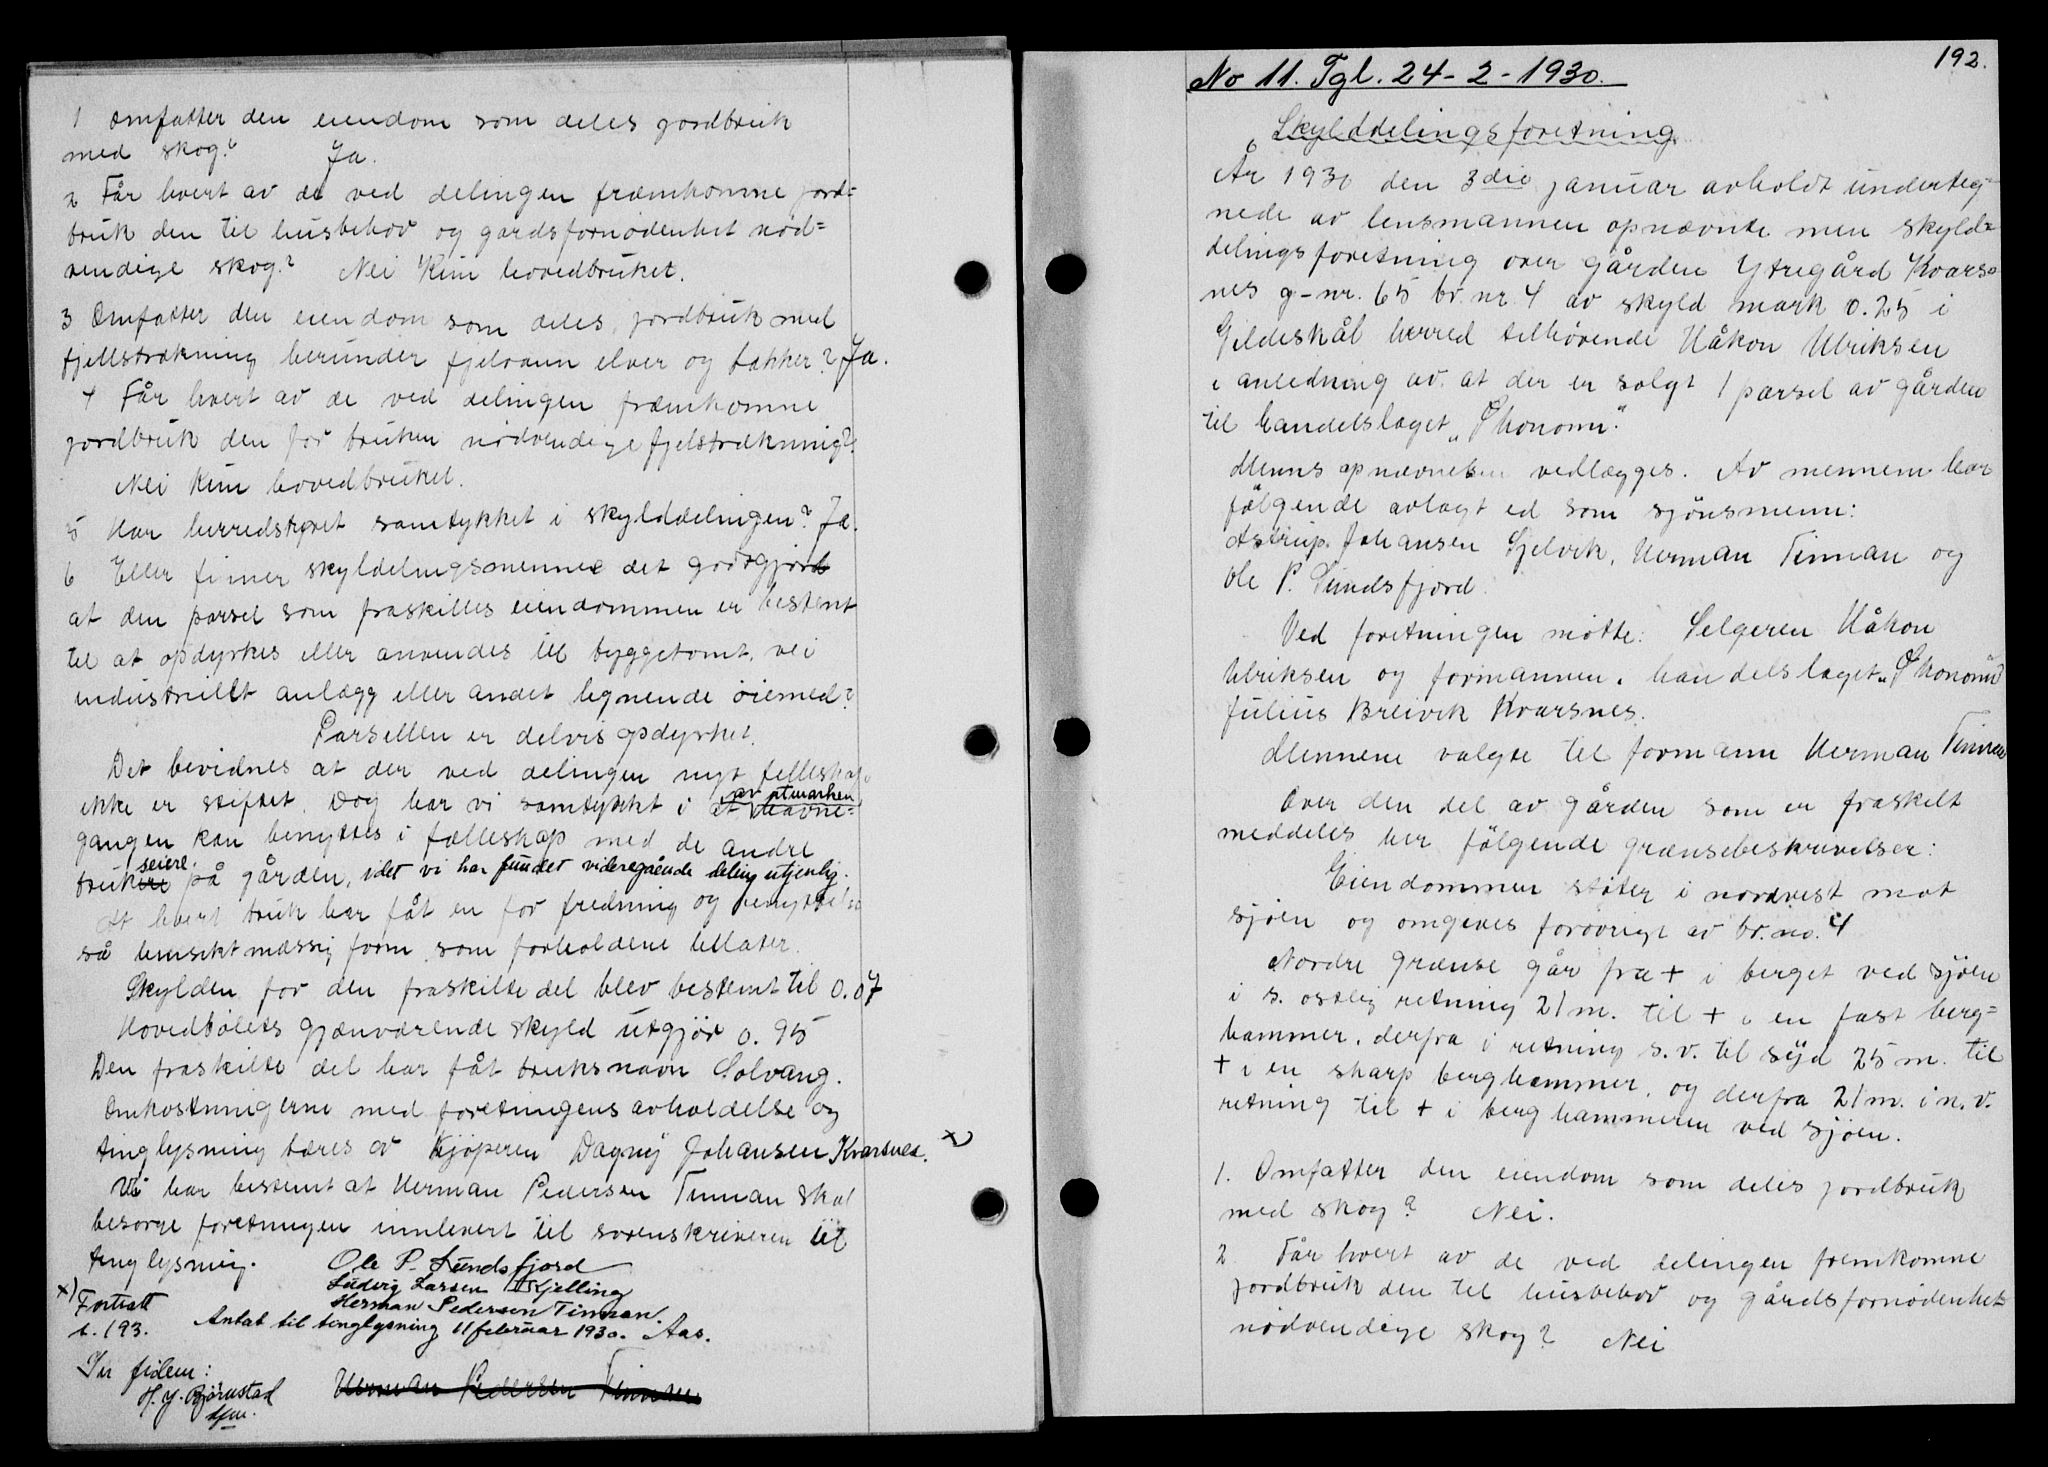 1 Omfatter den eiendom som deles jordbruk
med skog? Ja.
2 Får hvert av de ved delingen fræmkomne jord=
bruk den til husbehov og gardsfornødenhet nød=
vendige skog? Nei Kun hovedbruket.
3 Omfatter den eiendom som deles, jordbruk med
fjellstrækning herunder fjelvann elver og bækker? Ja.
4 Får hvert av de ved delingen fræmkomne
jordbruk den for bruken nødvendige fjelstrækning?
Nei Kun hovedbruket.
5 Har herredstyret samtykket i skylddelingen? Ja.
6 Eller finner skyldelingsmennene det godtgjord
at den parsel som fraskilles eiendommen er bestemt
til at opdyrkes eller anvendes til byggetomt, vei
industrielt anlægg eller andet lignende øiemed?
Parsellen er delvis opdyrket.
Det bevidnes at der ved delingen nyt felleskap
ikke er stiftet. Dog har vi samtykket i at havne=
av utmarken
gangen kan benyttes i fælleskap med de andre
brukere på gården, idet vi har fundet videregående deling utjenlig.
seiere.
At hvert bruk har fåt en for fredning og benyttelse
så hensiktmæssig form som forholdene tillater.
Skylden for den fraskilte del blev bestemt til 0.07
Hovedbølets gjenværende skyld utgjør 0.95
Den fraskilte del har fåt bruksnavn Solvang.
Omkostningerne med forretningens avholdelse og
tinglysning bæres av Kjøperen Dagny Johansen Kvarsnes. x)
Vi har bestemt at Herman Pedersen Tinnan skal
besørge foretningen innlevert til sorenskriveren til
tinglysning.
Ole P. Sundsfjord
Ludvig Larsen Kjelling
Herman Pedersen Tinnan.
x) Fortsatt
s. 193.
Antat til tinglysning 11 februar 1930. Aas.
In fidem:
H. J. Bjørnstad
Herman Pedersen Tinnan
192.
No 11. Tgl. 24-2-1930.
Skylddelingsforetning.
År 1930 den 3die januar avholdt underteg=
nede av lensmannen opnævnte menn skyld=
delingsforetning over gården Ytregård Kvars=
nes g-nr. 65 br. nr. 4 av skyld mark 0.25 i
Gildeskål herred tilhørende Håkon Ulriksen
i anledning av at der er solgt 1 parsel av gården
til handelslaget "Økonomi".
Menns opnævnelsen vedlægges. Av mennene har
følgende avlagt ed som sjønsmenn:
Astrup Johansen Sjelvik, Herman Tinnan og
Ole P. Sundsfjord.
Ved foretningen møtte: Selgeren Håkon
Ulriksen og formannen i handelslaget "Økonomi"
Julius Breivik Kvarsnes.
Mennene valgte til formann Herman Tinnan
Over den del av gården som er fraskilt
meddeles her følgende grænsebeskrivelser:
Eiendommen støter i nordvest mot
sjøen og omgives forøvrigt av br. no. 4
Nordre grænse går fra + i berget ved sjøen
i s. østlig retning 21 m. til + i en fast berg=
hammer, derfra i retning s.v. til syd 25 m. til
+ i en skarp berghammer, og derfra 21 m. i n.v.
retning til + i berghammeren ved sjøen.
1. Omfatter den eiendom som deles jordbruk
med skog? Nei.
2 Får hvert av de ved delingen fremkomne
jordbruk den til husbehov og gårdsfornødenhet
nødvendige skog? Nei